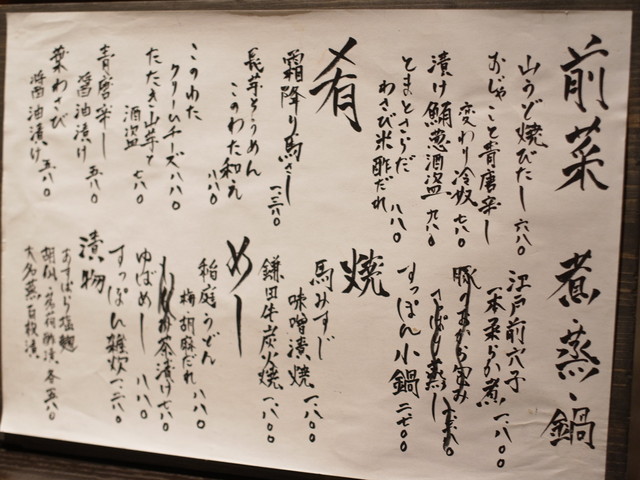 前菜
山うど焼びたし 六八〇
おじゃこと青唐辛し
変わり冷奴 七八〇
漬け鮪葱酒盗 九八〇
とまとさらだ
わさび米酢だれ 八八〇
肴
霜降り馬さし 一、三八〇
長芋そうめん
このわた和え 八八〇
このわた
クリームチーズ 八八〇
たたき山芋と
酒盗 七八〇
青唐辛し
醤油漬け 五八〇
葉わさび
醤油漬け 五八〇
煮・蒸・鍋
江戸前穴子
一本柔らか煮 一、八〇〇
すっぽん小鍋 二、七〇〇
焼
馬みすじ
味噌漬焼 一、八〇〇
鎌田牛炭火焼 一、八〇〇
めし
稲庭うどん
梅胡麻だれ 八八〇
茶漬け 七八〇
ゆばめし 八八〇
すっぽん雑炊 一、二八〇
漬物
各五八〇